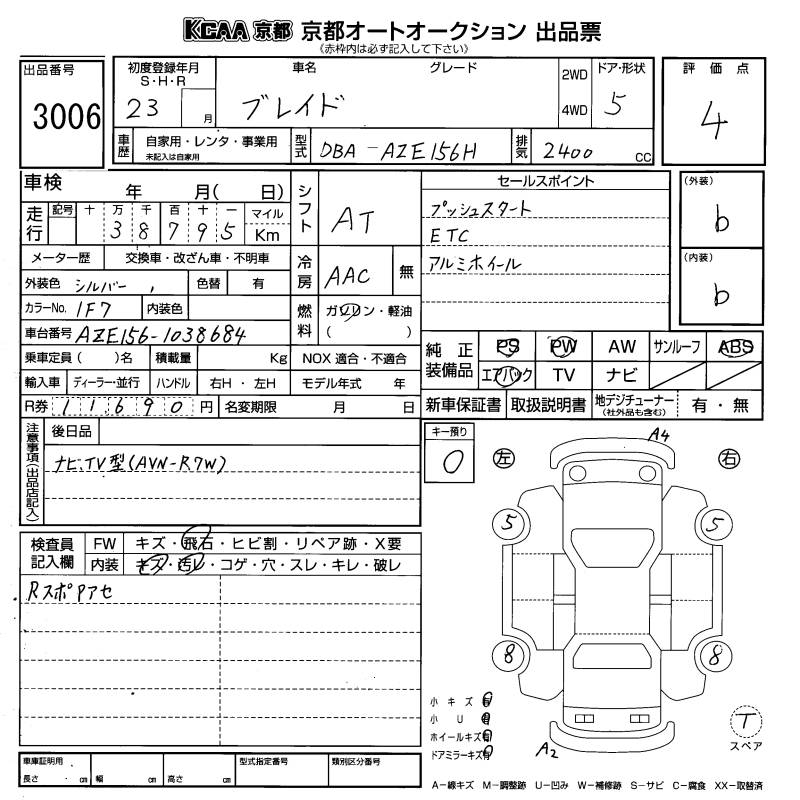 KCAA 京都 京都オートオークション 出品票
《赤枠内は必ず記入して下さい》
出品番号
3006
初度登録年月
S・H・R
23 月
車名
ブレイド
グレード
2WD
4WD
ドア・形状
5
評価点
4
車歴
自家用・レンタ・事業用
未記入は自家用
型式
DBA-AZE156H
排気
2400 CC
車検 年 月( 日)
走行
記号 十 万 千 百 十 一
3 8 7 9 5
マイル
Km
メーター歴 交換車・改ざん車・不明車
外装色 シルバー 色替 有
カラーNo. 1F7 内装色
車台番号 AZE156-1038684
乗車定員( )名 積載量 Kg
輸入車 ディーラー・並行 ハンドル 右H・左H
R券 11690円 名変期限 月 日
シフト AT
冷房 AAC 無
燃料 ガソリン・軽油
( )
NOX 適合・不適合
モデル年式 年
セールスポイント
プッシュスタート
ETC
アルミホイール
(外装)
b
(内装)
b
純正装備品
PS PW AW サンルーフ ABS
エアバック TV ナビ
新車保証書 取扱説明書 地デジチューナー
(社外品も含む)
有・無
注意事項(出品店記入)
後日品
ナビ.TV型(AVN-R7W)
キー預り
0
左
右
A4
5
5
8
8
A2
検査員記入欄
FW キズ・飛石・ヒビ割・リペア跡・X要
内装 キズ・汚レ・コゲ・穴・スレ・キレ・破レ
RスポPアセ
小キズ 有
小U 有
ホイールキズ 有
ドアミラーキズ 有
T
スペア
車庫証明用
長さ . cm 幅 cm 高さ cm
型式指定番号
類別区分番号
A-線キズ M-調整跡 U-凹み W-補修跡 S-サビ C-腐食 XX-取替済